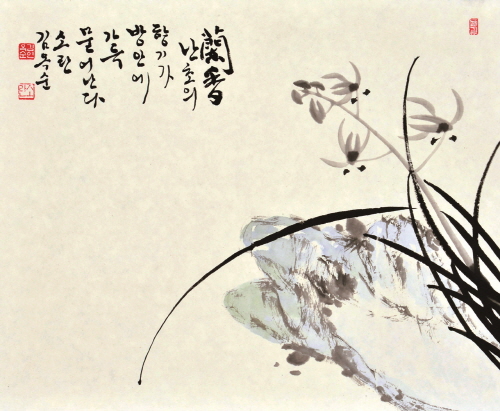 蘭香
난초의
향기가
방안에
가득
묻어난다
소란
김옥순